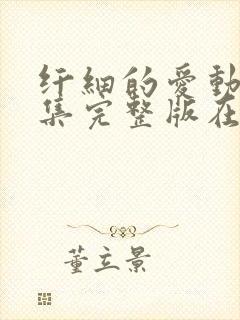 纤細的爱動
集完整版在
董立景